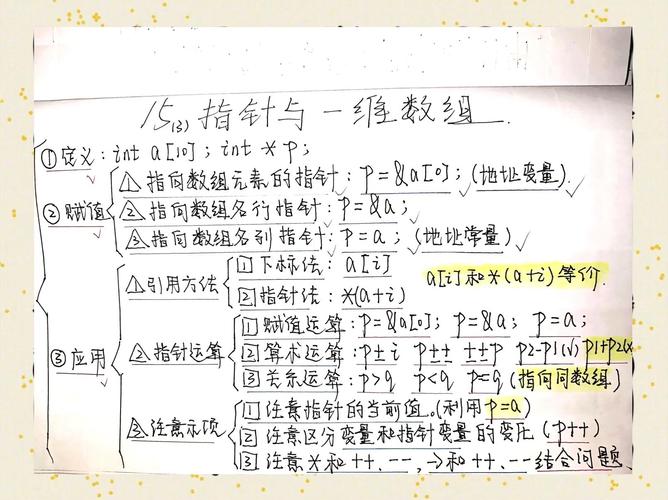 15(3) 指针与一维数组
① 定义: int a[10]; int *p;
② 赋值
△1 指向数组元素的指针: p=&a[0]; (地址变量)
△2 指向数组各行指针: p=&a;
△3 指向数组各列指针: p=a; (地址常量)
③ 应用
△1 引用方法
1 下标法: a[i]
2 指针法: *(a+i)
a[i]和*(a+i)等价.
△2 指针运算
1 赋值运算: p=&a[0]; p=&a; p=a;
2 算术运算: p±i p±± ±±p p2-p1(√) p1+p2(x
3 关系运算: p>q p<q p=q (指向同数组)
△3 注意事项
1 注意指针的当前值。(利用p=a)
2 注意区分变量和指针变量的变化 (p++)
3 注意*和++、--,→和++、--结合问题